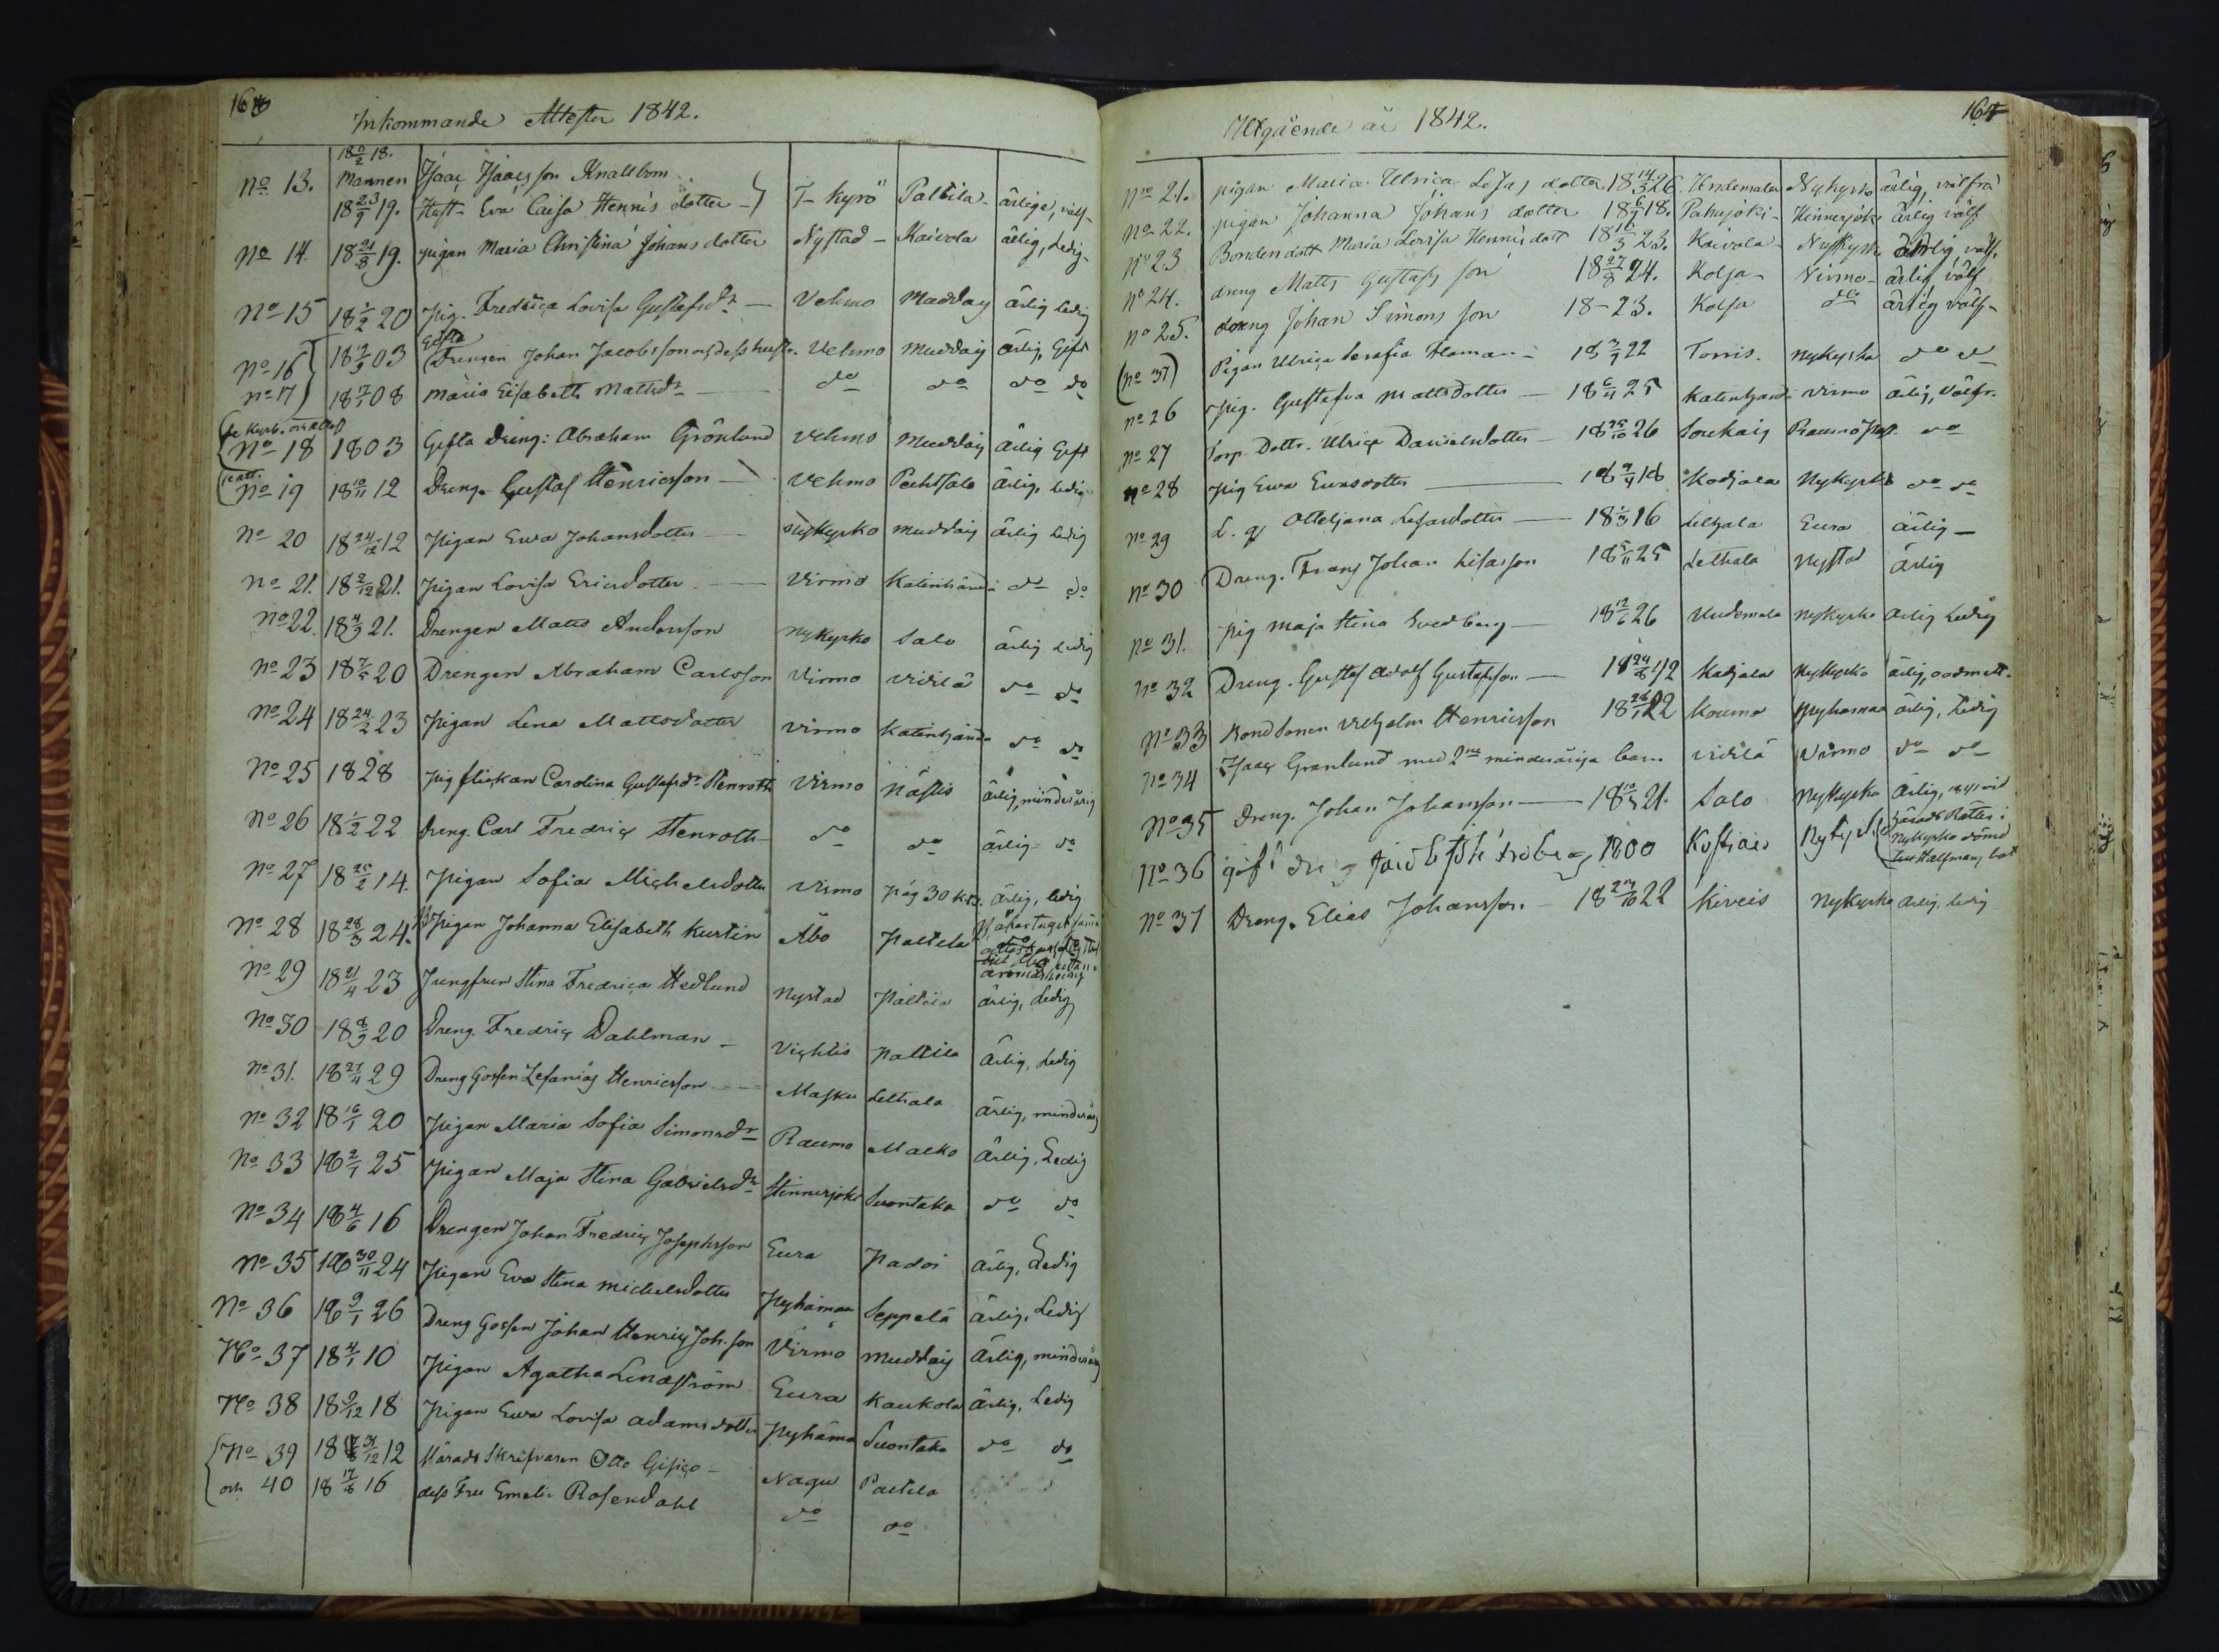 Inkommande Attester 1842.
18 5/2 18.
No 13. Mannen Isaac Isacsson Knallbom
18 23/9 19. Hust- Eva Caisa Hennis dotter - T-kyrö Paltila- ärlige, välf-
No 14. 18 21/8 19. pigan Maria Christina Johans dotter Nystad- Kaivola ärlig, Ledig-
No 15 18 1/2 20 Pig. Fredrica Lovisa Gustafsdr - Vehmo Muddais ärlig ledig
Gifta
No 16 18 /9 03 Drengen Johan Jacobsson o dess hustr. Vehmo Muddais ärlig, Gift
No 17 18 7/1 08 Maria Elisabeth Mattsdr do do do do
No 18 1803 Gifta dreng: Abraham Grönlund Vehmo Muddais ärlig Gift
No 19 18 10/11 12 Dreng. Gustaf Henricsson - Vehmo Puhtsalo ärlig, ledig
No 20 18 24/12 12 Pigan Ewa Johansdotter - Nykyrko Muddais ärlig ledig
No 21. 18 2/12 21. Pigan Lovisa Ericsdotter Virmo Katinhändä do do
No 22. 18 4/9 21. Drengen Matts Andersson Nykyrko Salo ärlig ledig
No 23 18 7/5 20 Drengen Abraham Carlsson Virmo Vidilä do do
No 24 18 24/2 23 Pigan Lena Mattsdotter Virmo Katinhändä do do
No 25 1828 Pigflickan Carolina Gustafsdr Stenroth Virmo Nästis ärlig, minderårig
No 26 18 1/2 22 Dreng. Carl Fredric Stenroth do do ärlig do
No 27 18 25/2 14. Pigan Sofia Michelsdotter Virmo pag 30 ärlig, ledig
No 28 18 28/3 24. Pigan Johanna Elisabeth Kurtin Åbo Paltila
No 29 18 21/4 23 Jungfrun Stina Fredrica Hedlund Nystad Paltila ärlig, Ledig
No 30 18 8/9 20 Dreng. Fredric Dahlman - Vichtis Paltila Ärlig, Ledig
No 31. 18 21/4 29 Dreng Gossen Zefanias Henricsson - Masku Lethala ärlig, minderårig
No 32 18 16/1 20 Pigan Maria Sofia Simonsdr Raumo Malko ärlig, Ledig
No 33 18 2/1 25 Pigan Maja Stina Gabrielsdr Hinnerjoki Suontaka do do
No 34 18 4/6 16 Drengen Johan Fredric Josephsson Eura Padoi ärlig, Ledig
No 35 18 30/11 24 Pigan Eva Stina Michelsdotter Pyhämaa Seppälä ärlig, Ledig
No 36 18 9/1 26 Dreng Gossen Johan Henric Joh. son Virmo Muddais Ärlig, minderårig
No 37 18 4/1 10 Pigan Agatha Lindström Eura Kaukola ärlig, Ledig
No 38 18 9/12 18 Pigan Ewa Lovisa Adamsdotter Pyhämaa Suontaka do do
No 39 18 31/12 12 Härads Skrifvaren Otto Gisiço - Nagu Paltila
och 40 18 17/8 16 dess Fru Emelie Rosendahl do do
Utgående år 1842.
No 21. pigan Maria Ulrica Lisas dotter 18 14/3 26. Undemala Nykyrko ärlig, välfrä
No 22. pigan Johanna Johans dotter 18 6/7 18. Pahujoki- Hinnerjoki ärlig välf
No 23 Bondendott Maria Lovisa Hennis dott 18 16/3 23. Kaivola- Nykyrk ärlig, välf.
No 24. dreng Matts Gustafs son 18 27/8 24. Kolsa- Virmo- ärlig välf
No 25. dreng Johan Simons son 18-23. Kolsa do ärlig välf-
(No 37) Pigan Ulrica Serafia Haman- 18 3/9 22 Torris. Nykyrka do do
No 26 Pig. Gustafva Mattsdotter - 18 6/11 25 Katinhändä Virmo ärlig, välfr.
No 27 Torp. Dottr. Ulrica Danielsdotter - 18 25/10 26 Soukais Raumo do
No 28 Pig Ewa Ewasdotter - 18 9/4 18 Kodjala Nykyrko do do
No 29 L. q Otteljana Lisasdotter - 18 1/3 16 Lethala Eura ärlig -
No 30 Dreng. Frans Johan Lisasson 18 5/11 25 Lethala Nystad Ärlig
No 31. Pig Maja Stina Svedberg - 18 12/6 26 Undemala Nykyrko ärlig Ledig
No 32 Dreng. Gustaf Adolf Gustafsson - 18 24/8 12 Kodjala Nykyrko ärlig, oadmitt.
No 33 Bondsonen Vilhjelm Henricsson 18 26/1 22 Kouma Pyhämaa ärlig, Ledig
No 34 Isaac Granlund med 2ne minderåriga barn Vidilä Virmo do do
No 35 Dreng. Johan Johansson - 18 10/3 21. Salo Nykyrko Ärlig, 1841 vid
Härads Rätten i
Nykyrko dömd
No 36 gift 1800 Kostiais
No 37 Dreng. Elias Johansson - 18 24/10 22 Kiveis Nykyrko ärlig, ledig